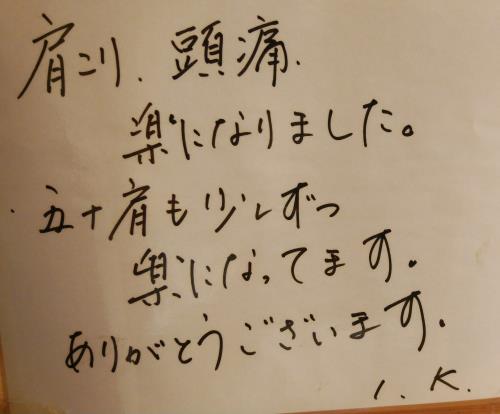 肩こり、頭痛、
楽になりました。
・五十肩も少しずつ
楽になってます。
ありがとうございます。
I. K.